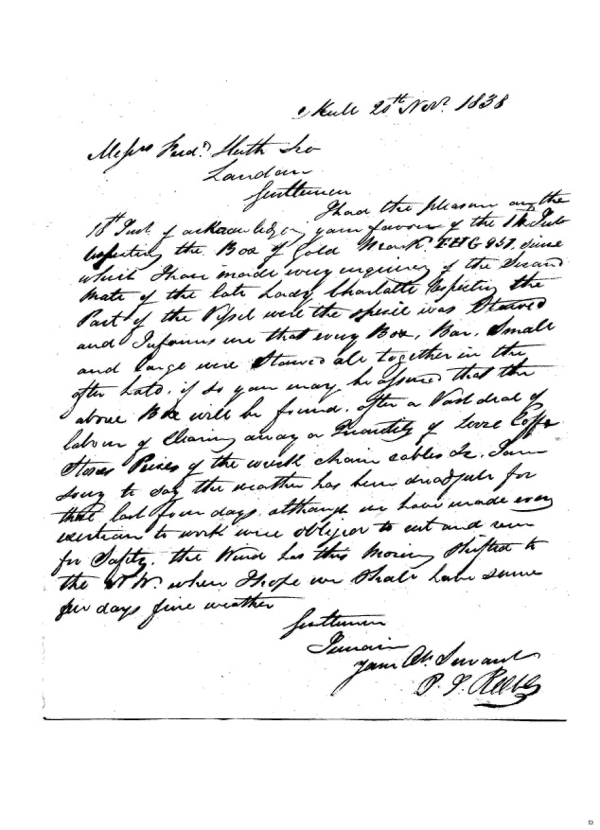 20th Novr. 1838
Messrs Fredk Huth & Co
London
Gentlemen
I had the pleasure on the
18th Inst of acknowledging your favour of the Inst
respecting the Box of Gold Mark 951. since
which I have made every inquirey of the Second
Mate of the late Lady Charlotte respecting the
Part of the Vessel were the specie was Stowed
and Informs me that every Box, Bar, Small
and large were Stowed all together in the
after hold. if so you may be assured that the
above Box will be found. after a Vast deal of
labour of Clearing away a Quantity of Loose
Stones Peices of the wreck chain cables &c. I am
sorry to say the weather has been dreadfull for
that last four days. although we have made every
exertion to work were obliged to cut and run
for Safty. the Wind has this Morning Shifted to
the N.W. when I hope we shall have some
few days fine weather
Gentlemen
I remain
Your Ob. Servant